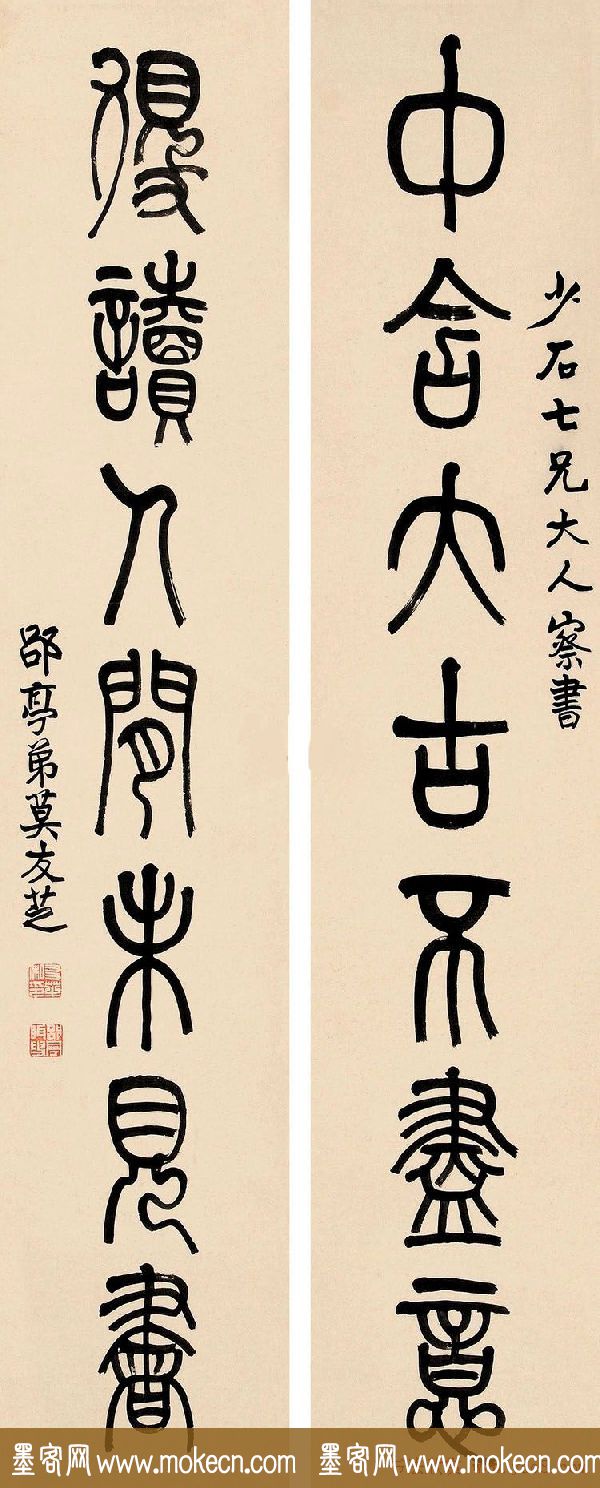 少石七兄大人察書
中含大古不盡意
得讀人間未見書
郘亭弟莫友芝
墨客网 www.mokecn.com
墨客网 www.mokecn.com